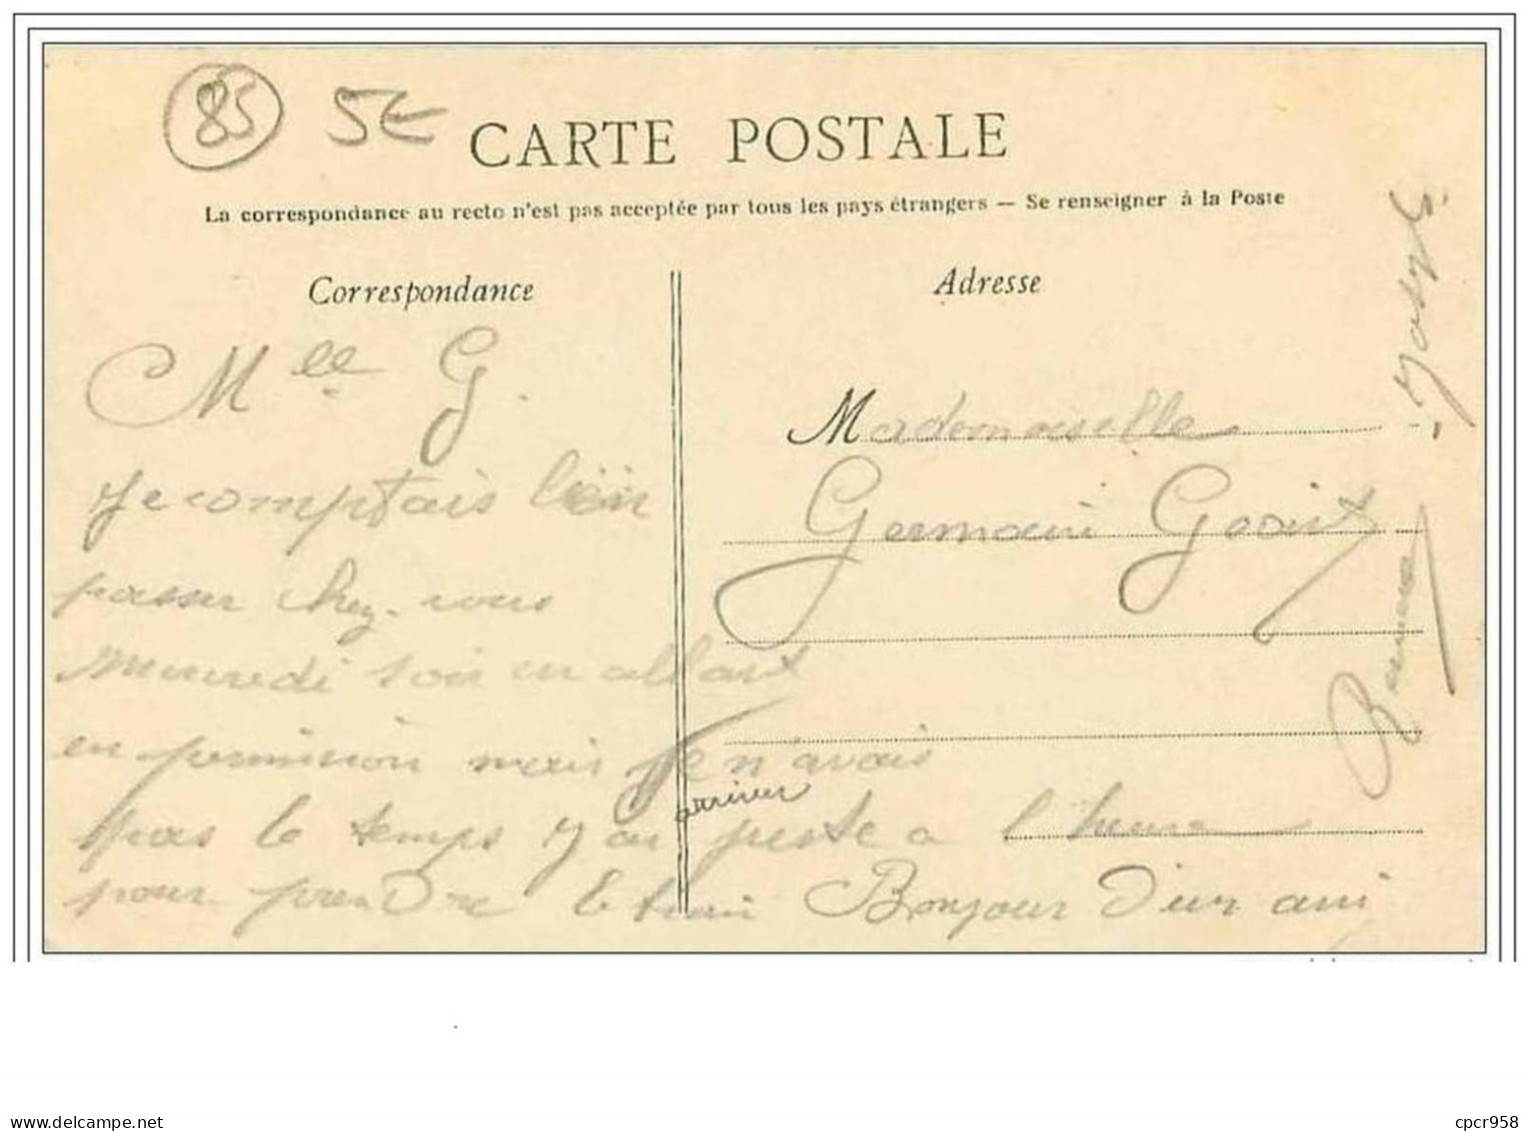 85 5€
CARTE POSTALE
La correspondance au recto n'est pas acceptée par tous les pays étrangers — Se renseigner à la Poste
Correspondance
Adresse
Mlle G.
Je comptais bien
passer chez vous
mercredi soir en allant
en permission mais je n'avais
pas le temps j'ai arriver juste a l'heure
pour prendre le train Bonjour d'un ami
Mademoiselle
Germaine
cpcr958